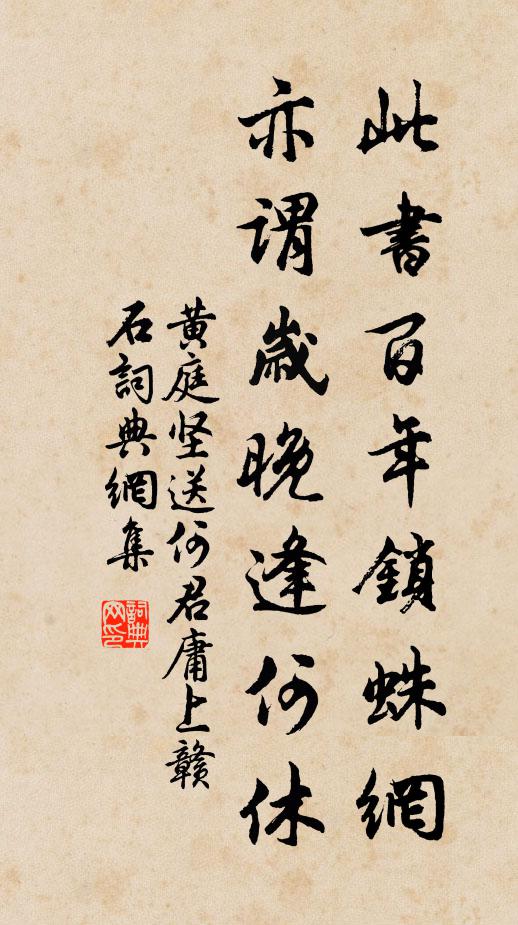 此書百年鎖蛛網
亦謂歲晚逢何休
黄庭坚送何君庸上贛
石詞典網集
詞典网印